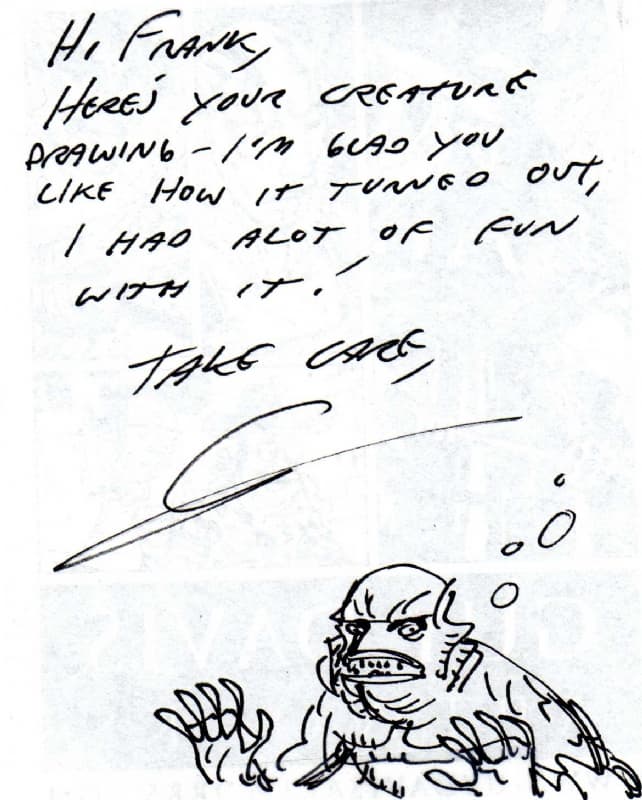 HI FRANK,
HERE'S YOUR CREATURE
DRAWING - I'M GLAD YOU
LIKE HOW IT TURNED OUT,
I HAD ALOT OF FUN
WITH IT!
TAKE CARE,